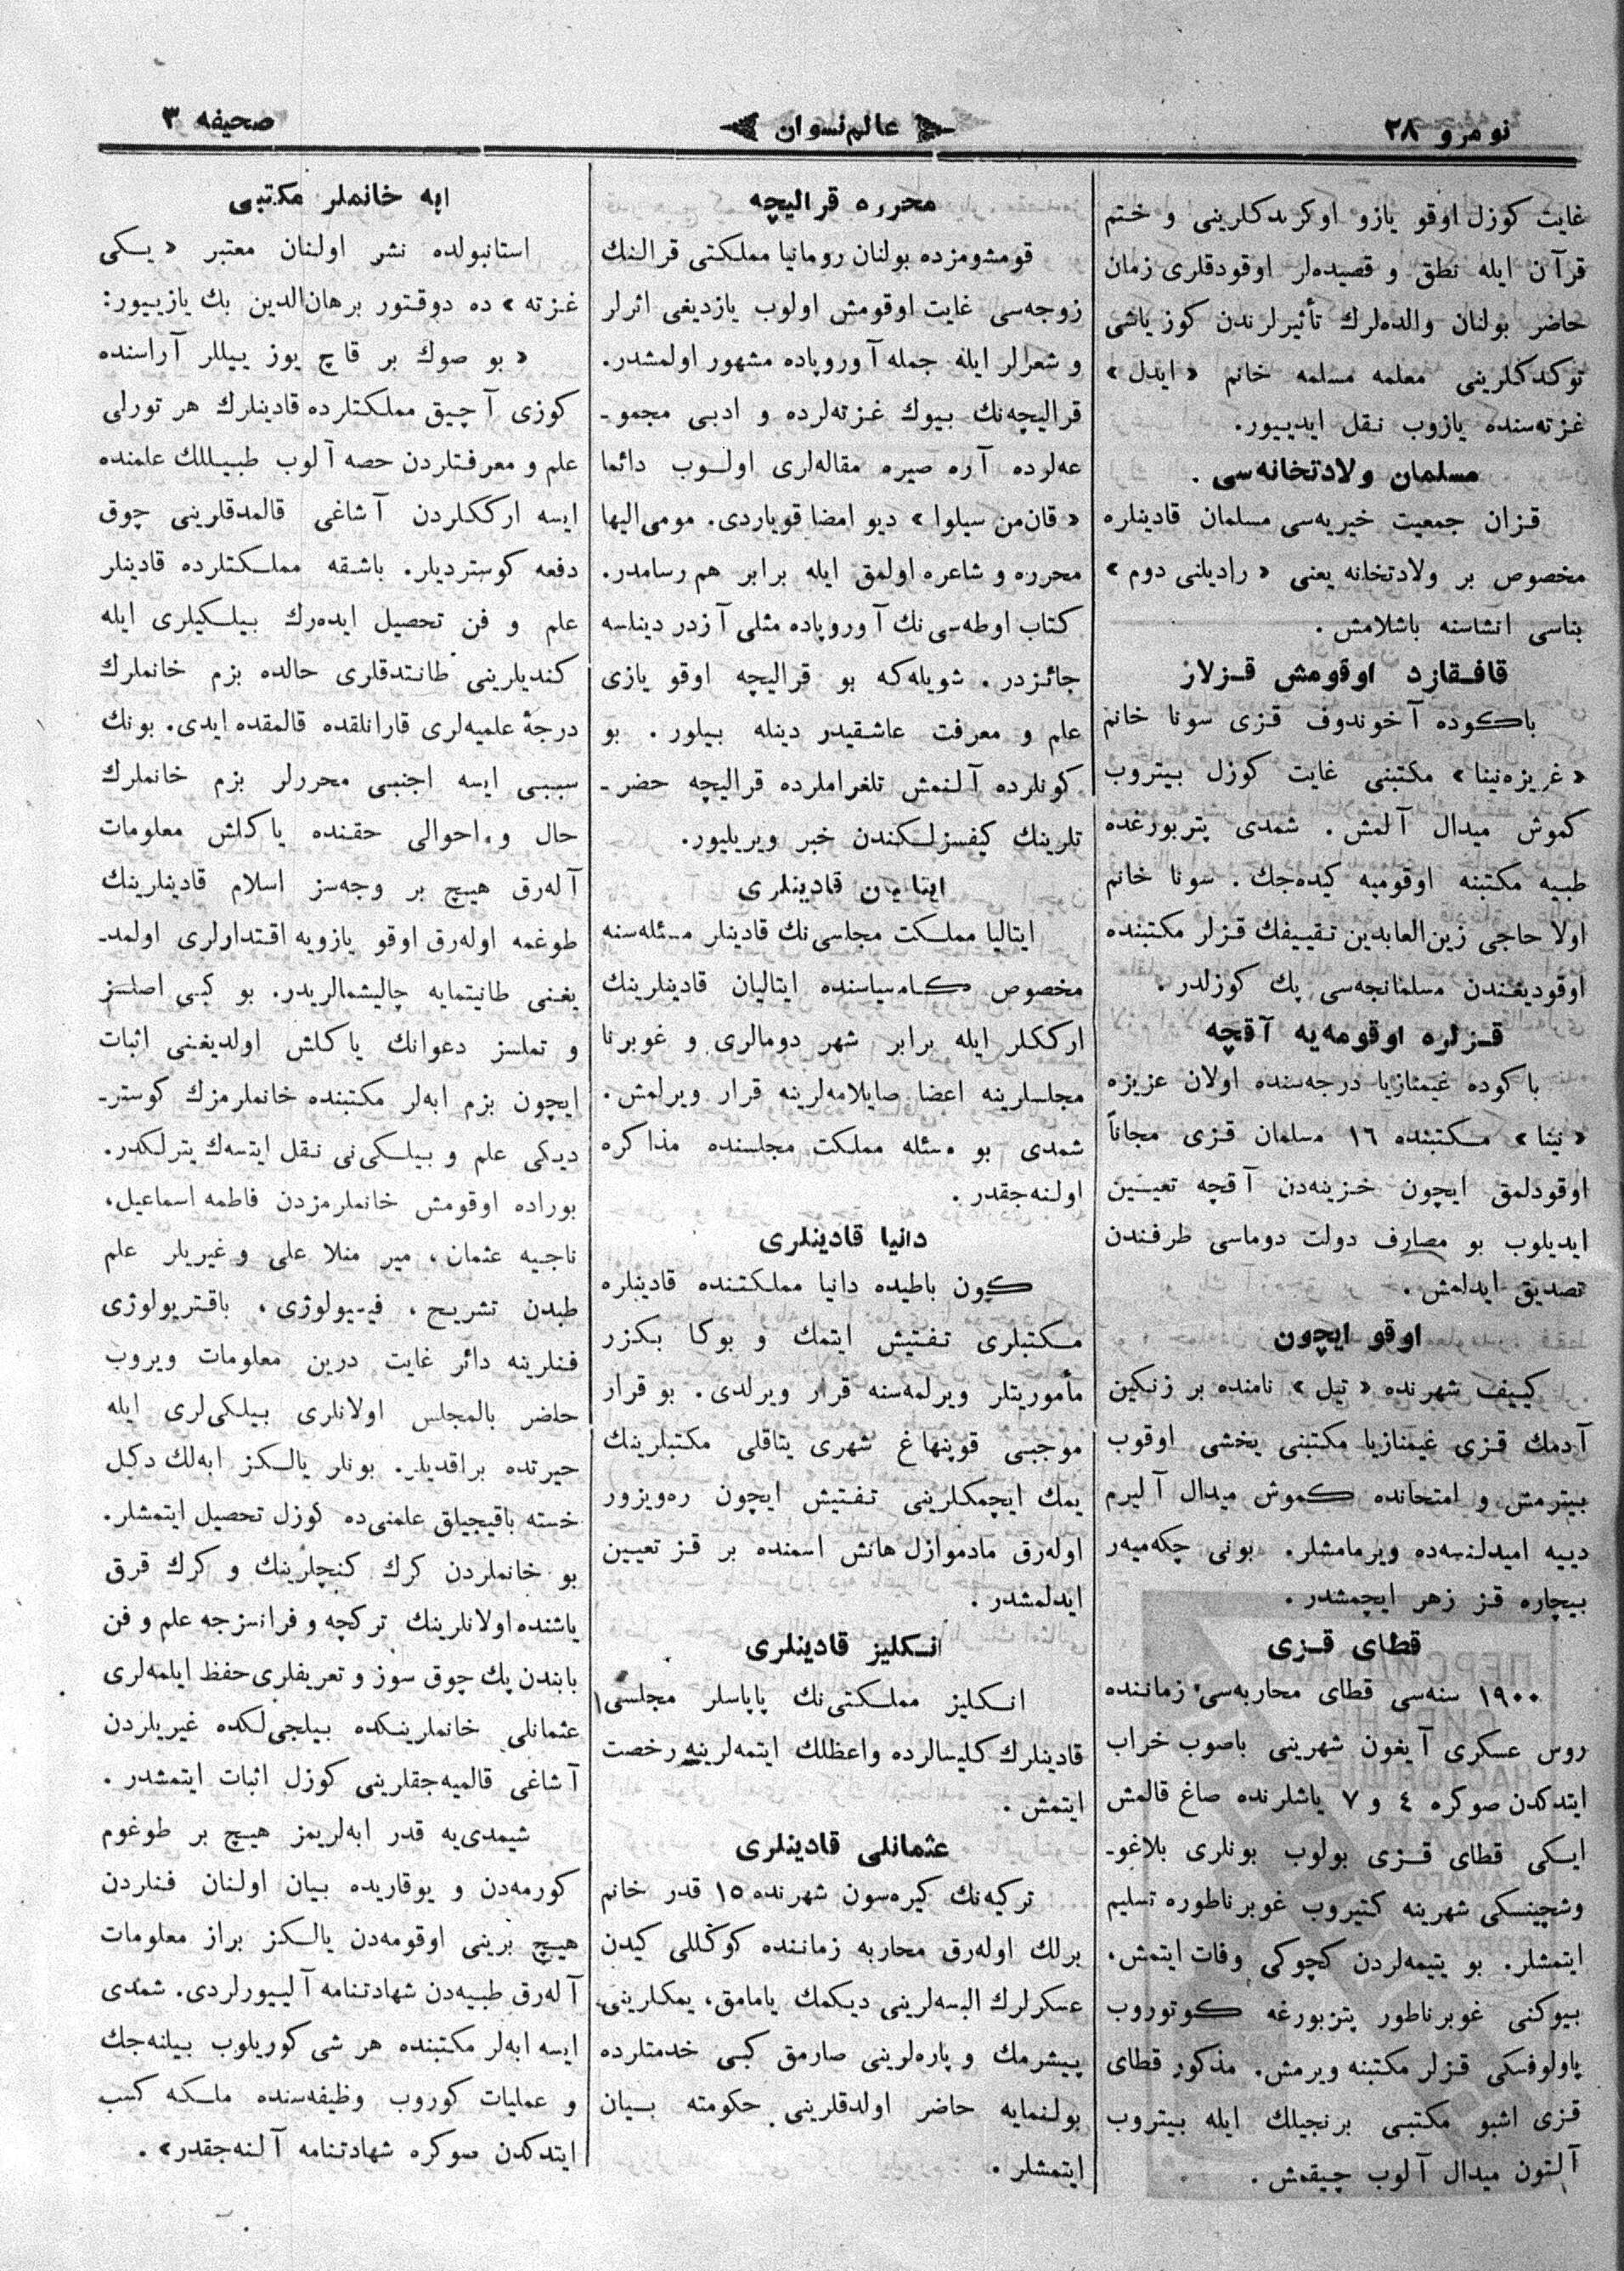 نومرو ٢٨
عالم نسوان
صحیفه ٣
غایت كوزل اوقو یازو اوكرندكلرینی و ختم
قرآن ایله نطق و قصیده‌لر اوقودقلری زمان
حاضر بولنان والده‌لرك تأثیرلرندن كوز یاشی
توكدكلرینی معلمه مسلمه خانم «ایدل»
غزته‌سنده یازوب نقل ایدییور.
مسلمان ولادتخانه‌سی.
قزان جمعیت خیریه‌سی مسلمان قادینلره
مخصوص بر ولادتخانه یعنی «رادیلنی دوم»
بناسی انشاسنه باشلامش.
قافقازد اوقومش قزلار
باكوده آخوندوف قزی سونا خانم
«غریزه‌نینا» مكتبنی غایت كوزل بیتروب
كموش میدال آلمش. شمدی پتربورغده
طبیه مكتبنه اوقومیه كیده‌جك. سونا خانم
اولا حاجی زین‌العابدین تقییفك قزلر مكتبنده
اوقودیغندن مسلمانجه‌سی پك كوزلدر.
قزلره اوقومه‌یه آقچه
باكوده غیمنازیا درجه‌سنده اولان عزیزه
«نینا» مكتبنده ١٦ مسلمان قزی مجاناً
اوقودلمق ایچون خزینه‌دن آقچه تعیین
ایدیلوب بو مصارف دولت دوماسی طرفندن
تصدیق ایدلمش.
اوقو ایچون
كییف شهرنده «تیل» نامنده بر زنكین
آدمك قزی غیمنازیا مكتبنی یخشی اوقوب
بیترمش و امتحانده كموش میدال آلیرم
دییه امیدلنسه‌ده ویرمامشلر. بونی چكه‌میه‌ر
بیچاره قز زهر ایچمشدر.
قطای قزی
١٩٠٠ سنه‌سی قطای محاربه‌سی زماننده
روس عسكری آیغون شهرینی باصوب خراب
ایتدكدن صوكره ٤ و ٧ یاشلرنده صاغ قالمش
ایكی قطای قزی بولوب بونلری بلاغو-
وشچینسكی شهرینه كتیروب غوبرناطوره تسلیم
ایتمشلر. بو یتیمه‌لردن كچوكی وفات ایتمش،
بیوكنی غوبرناطور پتربورغه كوتوروب
پاولوفسكی قزلر مكتبنه ویرمش. مذكور قطای
قزی اشبو مكتبی برنجیلك ایله بیتروب
آلتون میدال آلوب چیقمش.
محرره قرالیچه
قومشومزده بولنان رومانیا مملكتی قرالنك
زوجه‌سی غایت اوقومش اولوب یازدیغی اثرلر
و شعرلر ایله جمله آوروپاده مشهور اولمشدر.
قرالیچه‌نك بیوك غزته‌لرده و ادبی مجمو-
عه‌لرده آره صیره مقاله‌لری اولوب دائما
«قان‌من سیلوا» دیو امضا قویاردی. مومی‌الیها
محرره و شاعره اولمق ایله برابر هم رسامدر.
كتاب اوطه‌سی‌نك آوروپاده مثلی آزدر دینلسه
جائزدر. شویله‌كه بو قرالیچه اوقو یازی
علم و معرفت عاشقیدر دینله بیلور. بو
كونلرده آلنمش تلغراملرده قرالیچه حضر-
تلرینك كیفسزلكندن خبر ویریلیور.
ایتالیان قادینلری
ایتالیا مملكت مجلسی‌نك قادینلر مسئله‌سنه
مخصوص كامسیاسنده ایتالیان قادینلرینك
ارككلر ایله برابر شهر دومالری و غوبرنا
مجلسلرینه اعضا صایلامه‌لرینه قرار ویرلمش.
شمدی بو مسئله مملكت مجلسنده مذاكره
اولنه‌جقدر.
دانیا قادینلری
كون باطیده دانیا مملكتنده قادینلره
مكتبلری تفتیش ایتمك و بوكا بكزر
مأموریتلر ویرلمه‌سنه قرار ویرلدی. بو قرار
موجبی قوپنهاغ شهری یتاقلی مكتبلرینك
یمك ایچمكلرینی تفتیش ایچون ره‌ویزور
اوله‌رق مادموازل هانش اسمنده بر قز تعیین
ایدلمشدر.
انكلیز قادینلری
انكلیز مملكتی‌نك پاپاسلر مجلسی
قادینلرك كلیسالرده واعظلك ایتمه‌لرینه رخصت
ایتمش.
عثمانلی قادینلری
تركیه‌نك كیره‌سون شهرنده ١٥ قدر خانم
برلك اوله‌رق محاربه زماننده كوكللی كیدن
عسكرلرك البسه‌لرینی دیكمك یامامق، یمكلرینی
پیشرمك و پاره‌لرینی صارمق كبی خدمتلرده
بولنمایه حاضر اولدقلرینی حكومته بیان
ایتمشلر.
ابه خانملر مكتبی
استانبولده نشر اولنان معتبر «یكی
غزته» ده دوقتور برهان‌الدین بك یازییور:
«بو صوك بر قاچ یوز ییللر آراسنده
كوزی آچیق مملكتلرده قادینلرك هر تورلی
علم و معرفتلردن حصه آلوب طبیبلك علمنده
ایسه ارككلردن آشاغی قالمدقلرینی چوق
دفعه كوستردیلر. باشقه مملكتلرده قادینلر
علم و فن تحصیل ایده‌رك بیلكیلری ایله
كندیلرینی طانتدقلری حالده بزم خانملرك
درجهٔ علمیه‌لری قارانلقده قالمقده ایدی. بونك
سببی ایسه اجنبی محررلر بزم خانملرك
حال و احوالی حقنده یاكلش معلومات
آله‌رق هیچ بر وجه‌سز اسلام قادینلرینك
طوغمه اوله‌رق اوقو یازویه اقتدارلری اولمد-
یغنی طانیتمایه چالیشمالریدر. بو كبی اصلسز
و تملسز دعوانك یاكلش اولدیغنی اثبات
ایچون بزم ابه‌لر مكتبنده خانملرمزك كوستر-
دیكی علم و بیلكی‌نی نقل ایتسه‌ك یترلكدر.
بوراده اوقومش خانملرمزدن فاطمه اسماعیل،
ناجیه عثمان، میر منلا علی و غیریلر علم
طبدن تشریح، فیسیولوژی، باقتریولوژی
فنلرینه دائر غایت درین معلومات ویروب
حاضر بالمجلس اولانلری بیلكی‌لری ایله
حیرتده براقدیلر. بونلر یالكز ابه‌لك دكل
خسته باقیجیلق علمنی‌ده كوزل تحصیل ایتمشلر.
بو خانملردن كرك كنچلرینك و كرك قرق
یاشنده اولانلرینك تركچه و فرانسزجه علم و فن
بابندن پك چوق سوز و تعریفلری حفظ ایلمه‌لری
عثمانلی خانملرینكده بیلجی‌لكده غیریلردن
آشاغی قالمیه‌جقلرینی كوزل اثبات ایتمشدر.
شیمدی‌یه قدر ابه‌لریمز هیچ بر طوغوم
كورمه‌دن و یوقاریده بیان اولنان فنلردن
هیچ برینی اوقومه‌دن یالكز براز معلومات
آله‌رق طبیه‌دن شهادتنامه آلییورلردی. شمدی
ایسه ابه‌لر مكتبنده هر شی كوریلوب بیلنه‌جك
و عملیات كوروب وظیفه‌سنده ملكه كسب
ایتدكدن صوكره شهادتنامه آلنه‌جقدر».